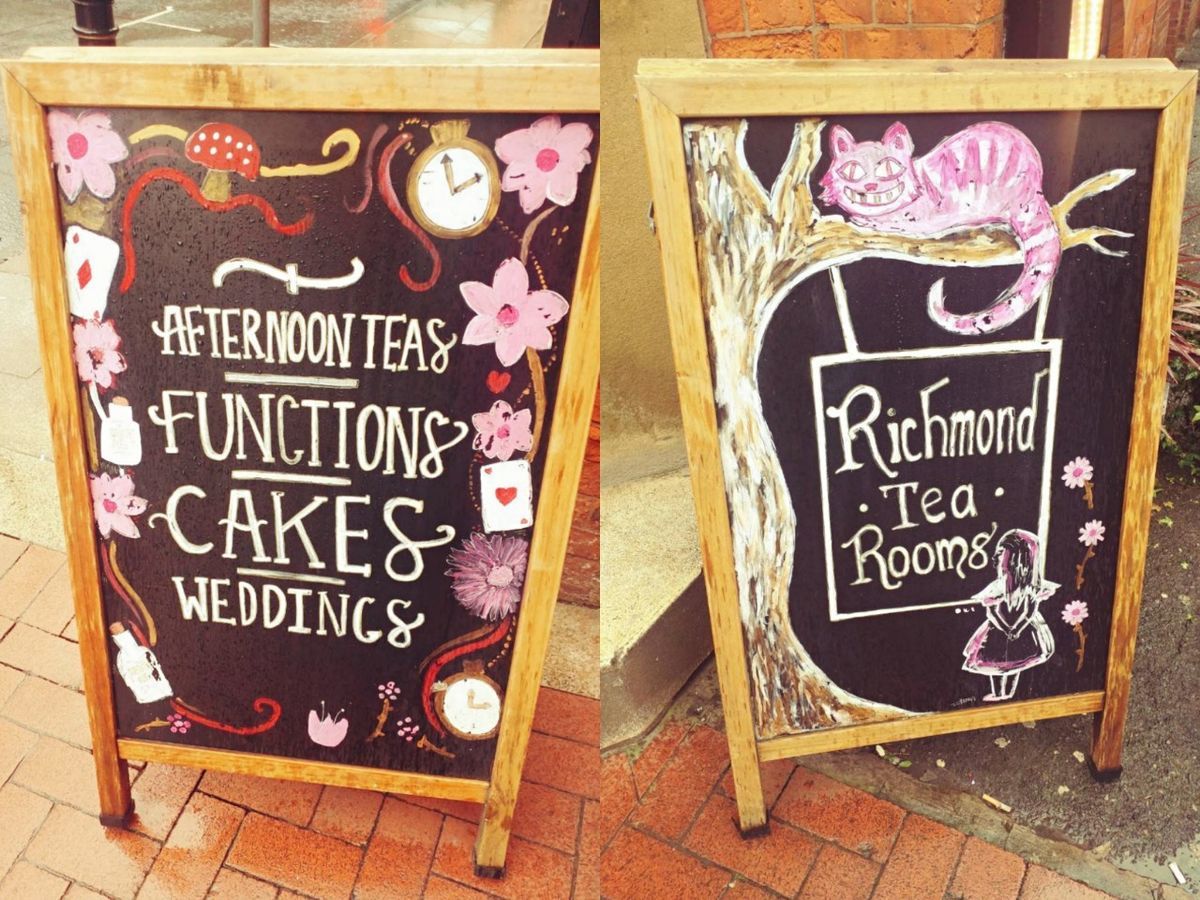 AFTERNOON TEAS
FUNCTIONS
CAKES
WEDDINGS
Richmond
· Tea ·
Rooms